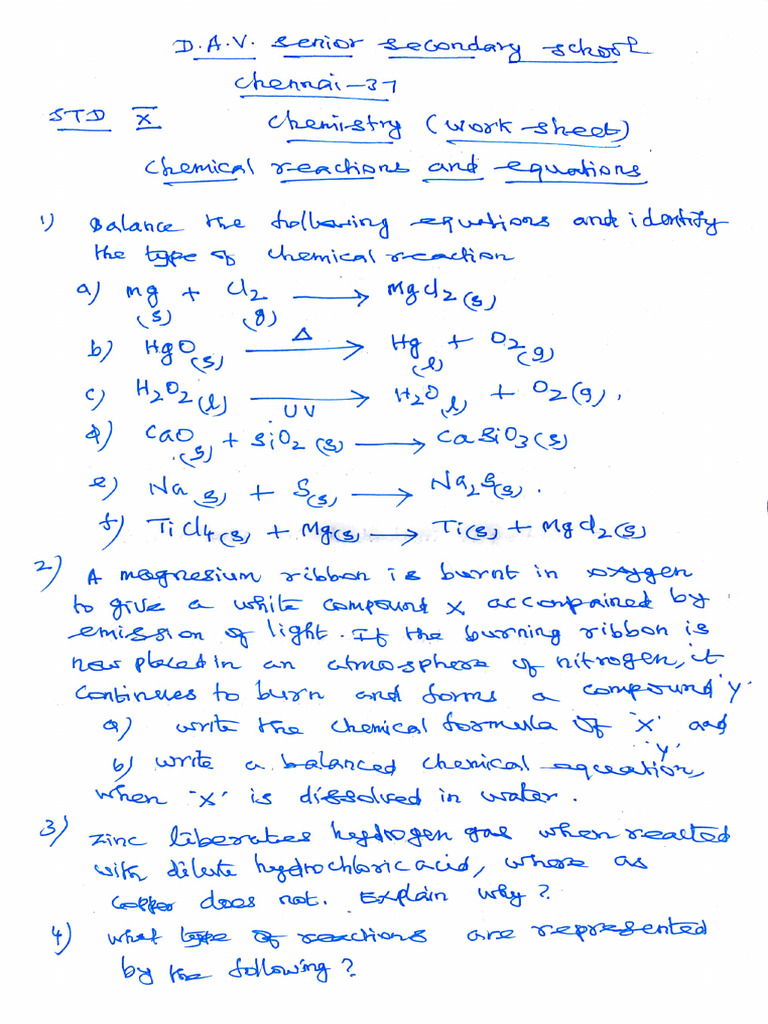 D.A.V. Senior Secondary School
Chennai-37
STD X Chemistry (Work-Sheet)
Chemical reactions and equations
1) Balance the following equations and identify
the type of chemical reaction
a) Mg (s) + Cl2 (g) → MgCl2 (s)
b) HgO (s) Δ → Hg (l) + O2 (g)
c) H2O2 (l) → UV H2O (l) + O2 (g).
d) CaO (s) + SiO2 (s) → CaSiO3 (s)
e) Na (s) + S (s) → Na2S (s).
f) TiCl4 (s) + Mg (s) → Ti (s) + MgCl2 (s)
2) A magnesium ribbon is burnt in oxygen
to give a white compound X accompained by
emission of light. If the burning ribbon is
now placed in an atmosphere of nitrogen, it
continues to burn and forms a compound 'Y'
a) write the chemical formula of 'X' and
'Y'
b) write a balanced chemical equation,
when 'X' is dissolved in water.
3) Zinc liberates hydrogen gas when reacted
with dilute hydrochloric acid, where as
copper does not. Explain why?
4) what type of reactions are represented
by the following?